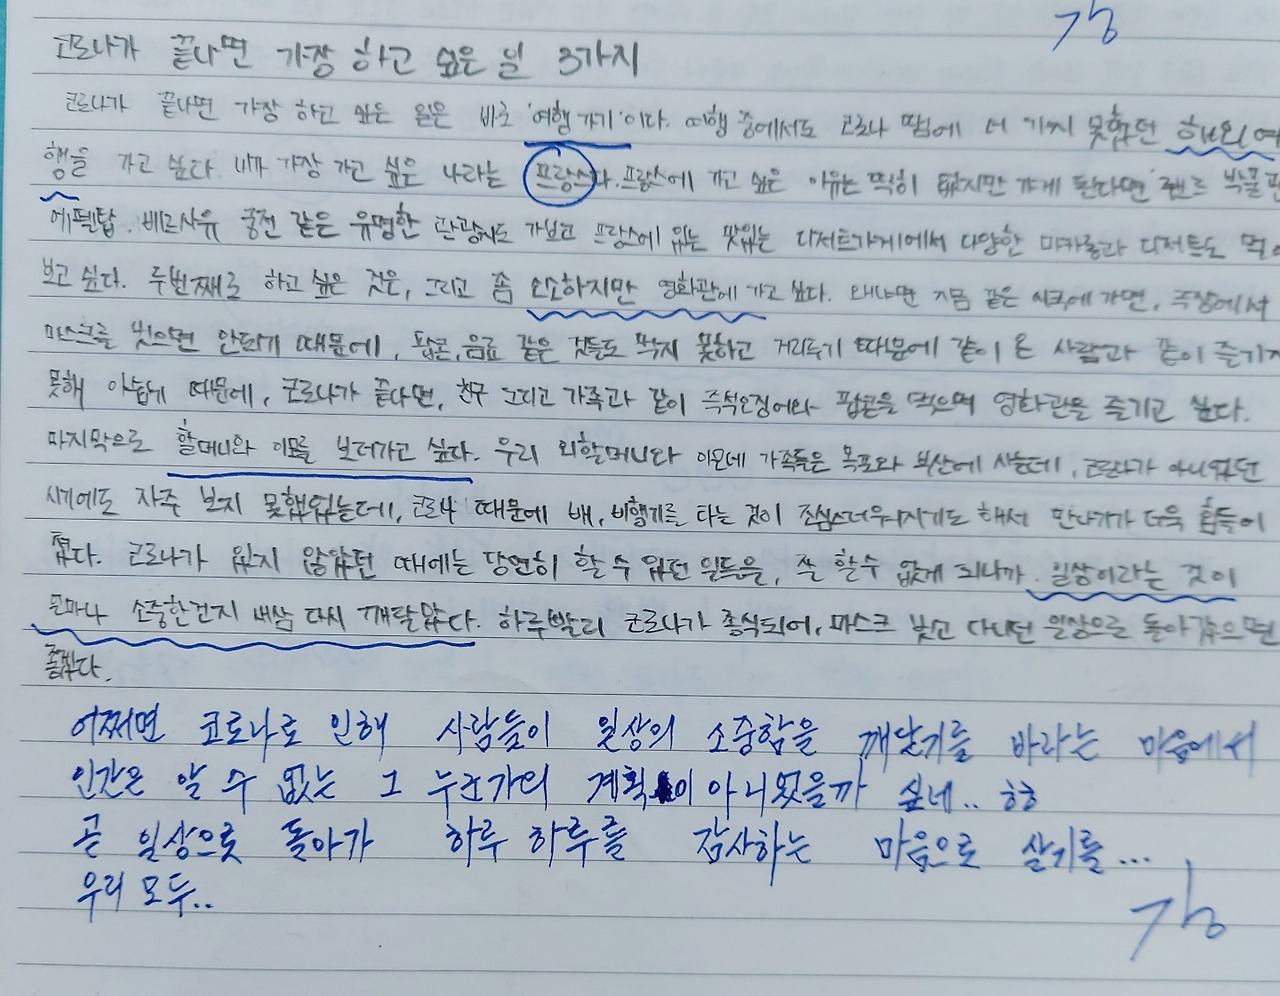 강
코로나가 끝나면 가장 하고 싶은 일 3가지
코로나가 끝나면 가장 하고 싶은 일은 바로 '여행 가기'이다. 여행 중에서도 코로나 땜에 더 가지 못했던 해외여
행을 가고 싶다. 내가 가장 가고 싶은 나라는 프랑스다. 프랑스에 가고 싶은 이유는 딱히 없지만 가게 된다면 박물관
에펠탑, 베르사유 궁전 같은 유명한 관광지도 가보고 프랑스에 있는 맛있는 디저트가게에서 다양한 마카롱과 디저트도 먹어
보고 싶다. 두번째로 하고 싶은 것은, 그리고 좀 소소하지만 영화관에 가고 싶다. 왜냐면 지금 같은 시국에 가면, 극장에서
마스크를 벗으면 안되기 때문에, 팝콘, 음료 같은 것들도 먹지 못하고 거리두기 때문에 같이 온 사람과 같이 즐기지
못해 아쉽기 때문에, 코로나가 끝나면, 친구 그리고 가족과 같이 즉석오징어와 팝콘을 먹으며 영화관을 즐기고 싶다.
마지막으로 할머니와 이모를 보러가고 싶다. 우리 외할머니와 이모네 가족들은 목포와 부산에 사는데, 코로나가 아니었던
시기에도 자주 보지 못했었는데, 코로나 때문에 배, 비행기를 타는 것이 조심스러워지기도 해서 만나기가 더욱 힘들어
졌다. 코로나가 있지 않았던 때에는 당연히 할 수 있던 일들을, 할수 없게 되니까. 일상이라는 것이
얼마나 소중한건지 새삼 다시 깨달았다. 하루빨리 코로나가 종식되어, 마스크 벗고 다니던 일상으로 돌아갔으면
좋겠다.
어쩌면 코로나로 인해 사람들이 일상의 소중함을 깨닫기를 바라는 마음에서
인간은 알 수 없는 그 누군가의 계획이 아니었을까 싶네.. ㅎㅎ
곧 일상으로 돌아가 하루 하루를 감사하는 마음으로 살기를...
우리 모두..
강